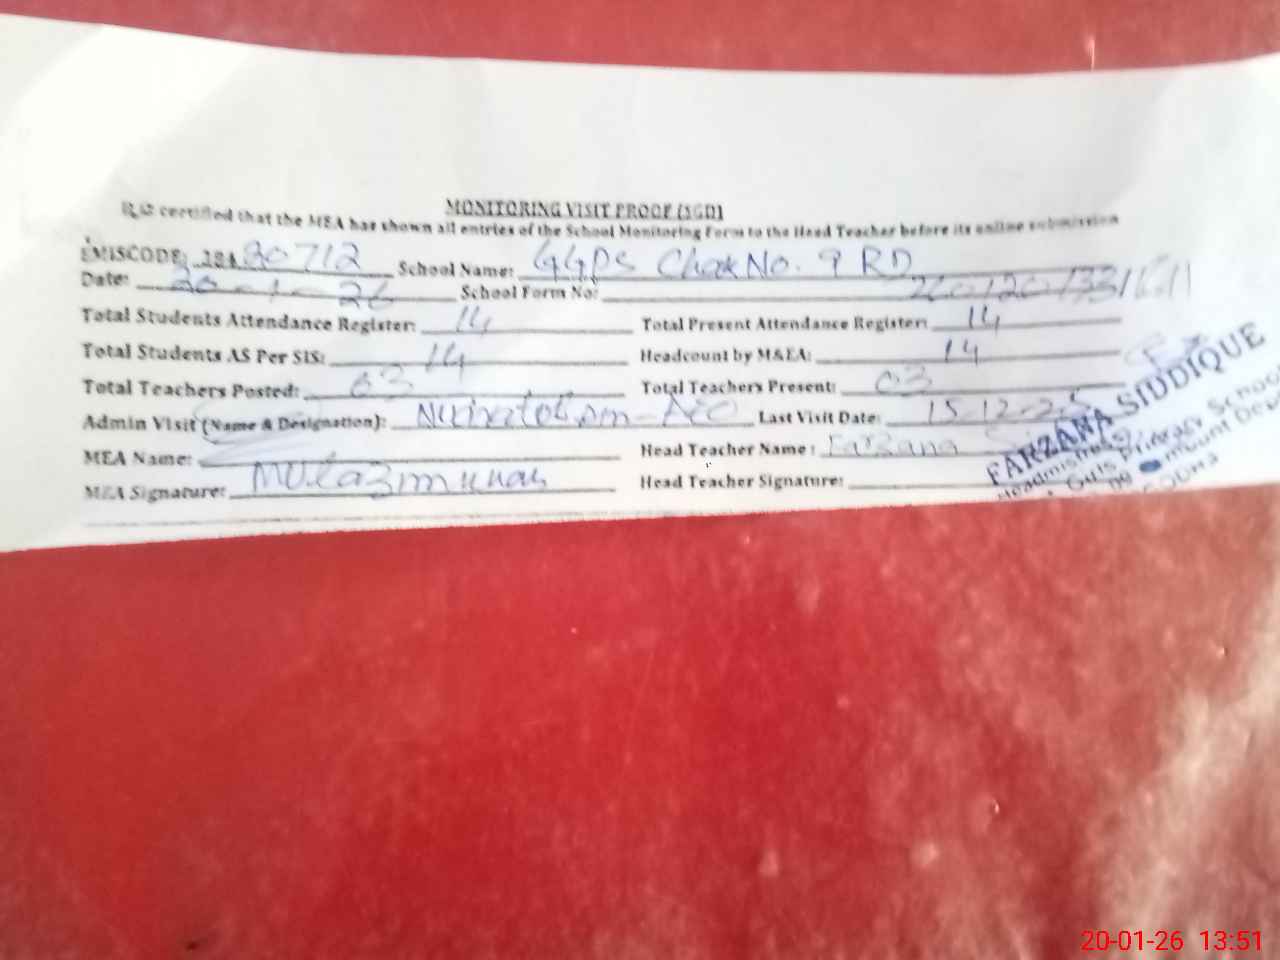 MONITORING VISIT PROOF (SGD)
It is certified that the MEA has shown all entries of the School Monitoring Form to the Head Teacher before its online submission
EMISCODE: 384 30712 School Name: GGPS Chak No. 9 RD
Date: 20-1-26 School Form No:
Total Students Attendance Register: 14 Total Present Attendance Register: 14
Total Students AS Per SIS: 14 Headcount by M&EA: 14
Total Teachers Posted: 03 Total Teachers Present: 03
Admin Visit (Name & Designation): Last Visit Date: 15-12-25
MEA Name: Head Teacher Name: Farzana
MEA Signature: Head Teacher Signature:
FARZANA SIDDIQUE
Headmistress
Girls Primary School
20-01-26 13:51